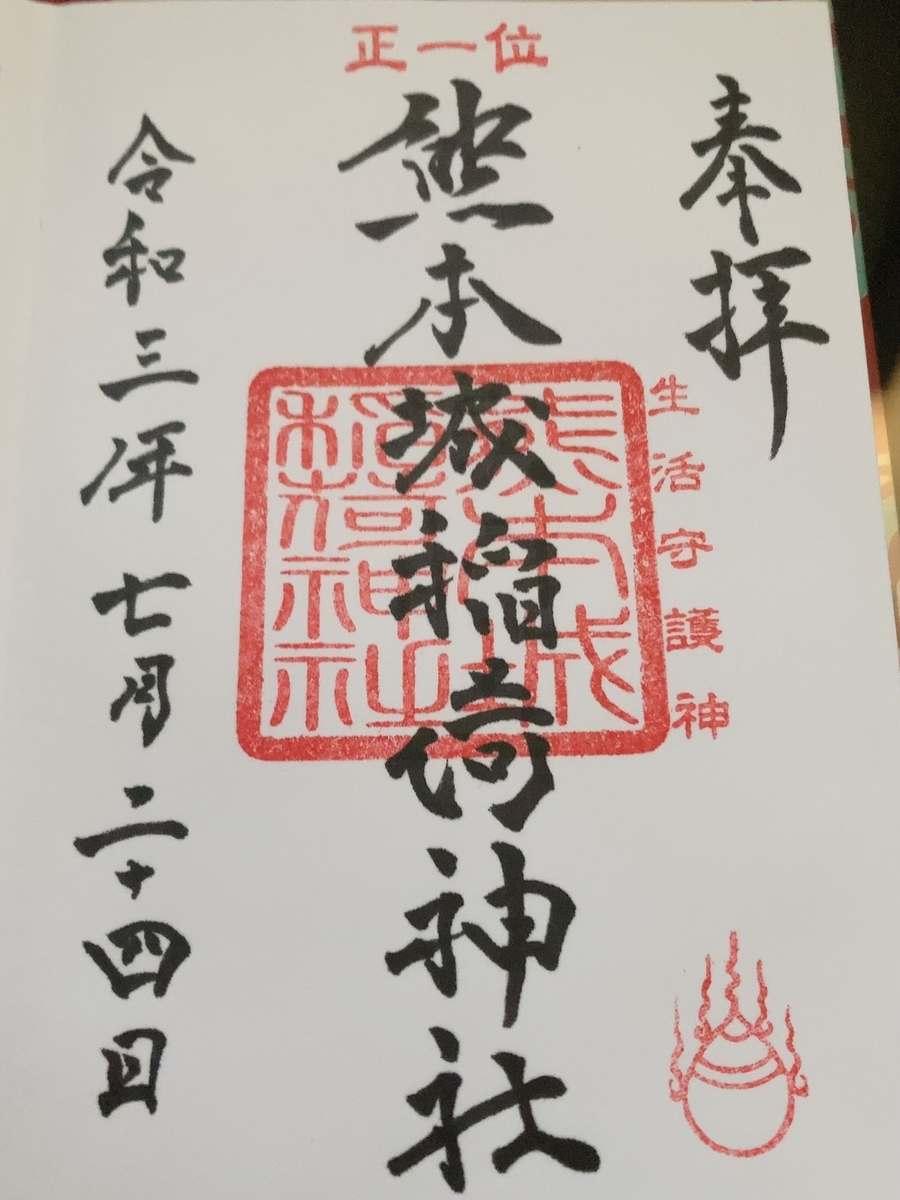 正一位
奉拝
生活守護神
熊本城稲荷神社
熊本城
稲荷神社
令和三年七月二十四日